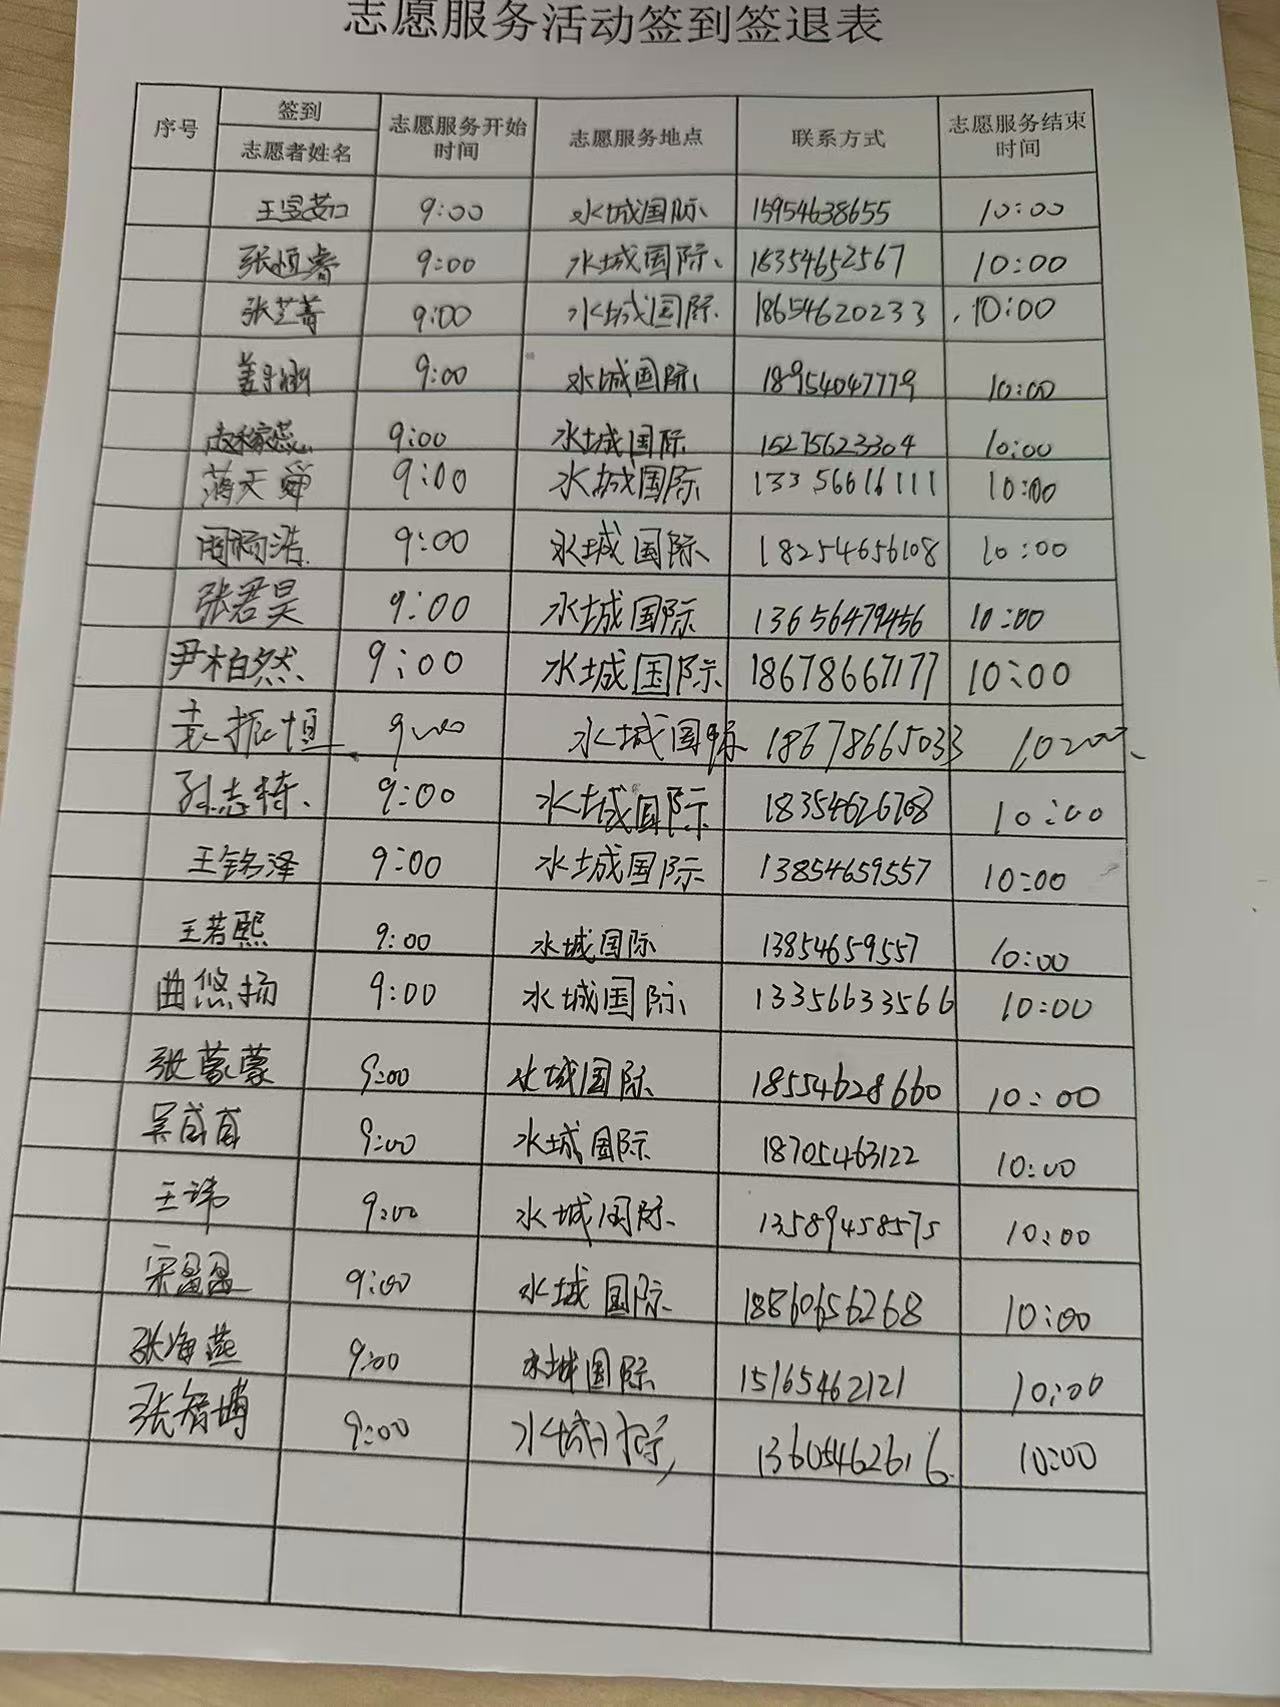 志愿服务活动签到签退表
序号 签到 志愿者姓名 志愿服务开始时间 志愿服务地点 联系方式 志愿服务结束时间
9:00 水城国际 15954638655 10:00
张恒睿 9:00 水城国际 16354652567 10:00
张芷菁 9:00 水城国际 18654620233 10:00
9:00 水城国际 18954047779 10:00
9:00 水城国际 15275623304 10:00
蒋天舜 9:00 水城国际 13356616111 10:00
周杨浩 9:00 水城国际 18254656108 10:00
张君昊 9:00 水城国际 13656479456 10:00
尹柏然 9:00 水城国际 18678667177 10:00
袁振恒 9:00 水城国际 18678665033 10:00
孙志特 9:00 水城国际 18354626768 10:00
王铭泽 9:00 水城国际 13854659557 10:00
王若熙 9:00 水城国际 13854659557 10:00
曲悠扬 9:00 水城国际 13356633566 10:00
张蒙蒙 9:00 水城国际 18554628660 10:00
9:00 水城国际 18705463122 10:00
王玮 9:00 水城国际 13589458575 10:00
宋晶晶 9:00 水城国际 18860656268 10:00
张海燕 9:00 水城国际 15165462121 10:00
张智博 9:00 水城国际 13605462616 10:00